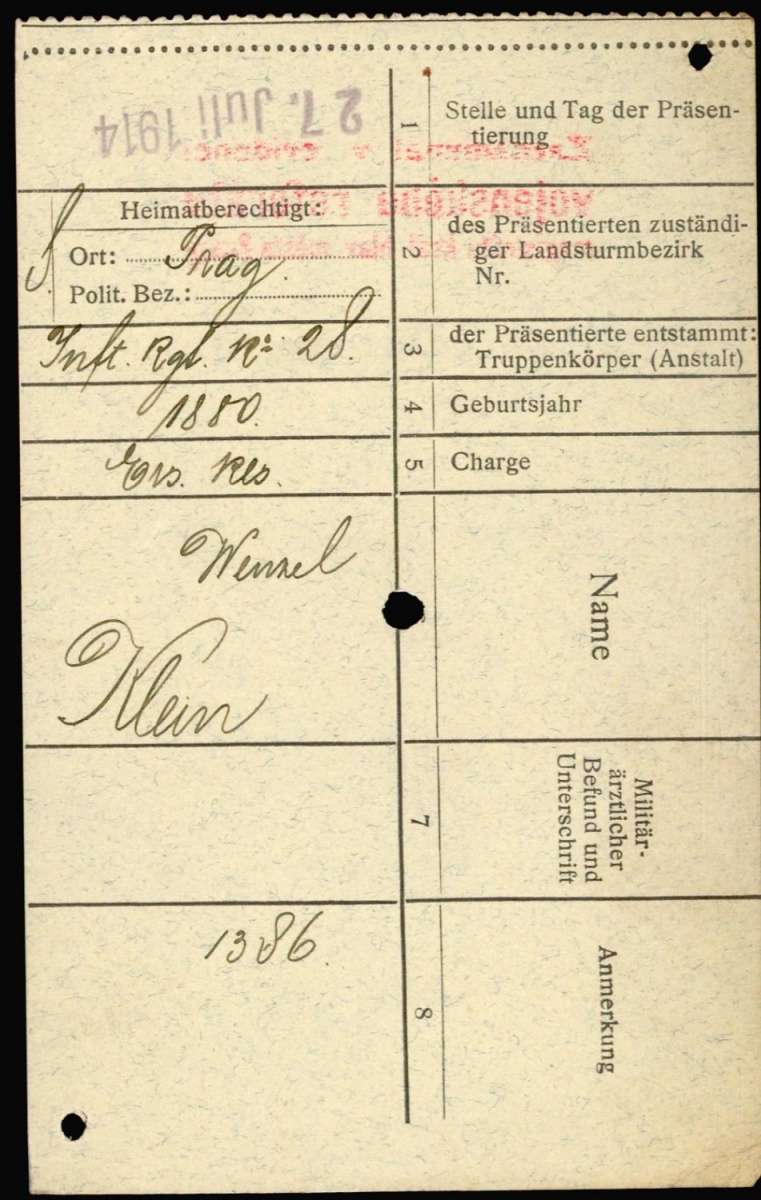 27. Juli 1914
1
Stelle und Tag der Präsen-
tierung
Heimatberechtigt:
Ort: Prag.
Polit. Bez.:
2
des Präsentierten zuständi-
ger Landsturmbezirk
Nr.
Inft. Rgt. No 28.
3
der Präsentierte entstammt:
Truppenkörper (Anstalt)
1880.
4
Geburtsjahr
Ers. Res.
5
Charge
Wenzel
Klein
Name
7
Militär-
ärztlicher
Befund und
Unterschrift
1386.
8
Anmerkung